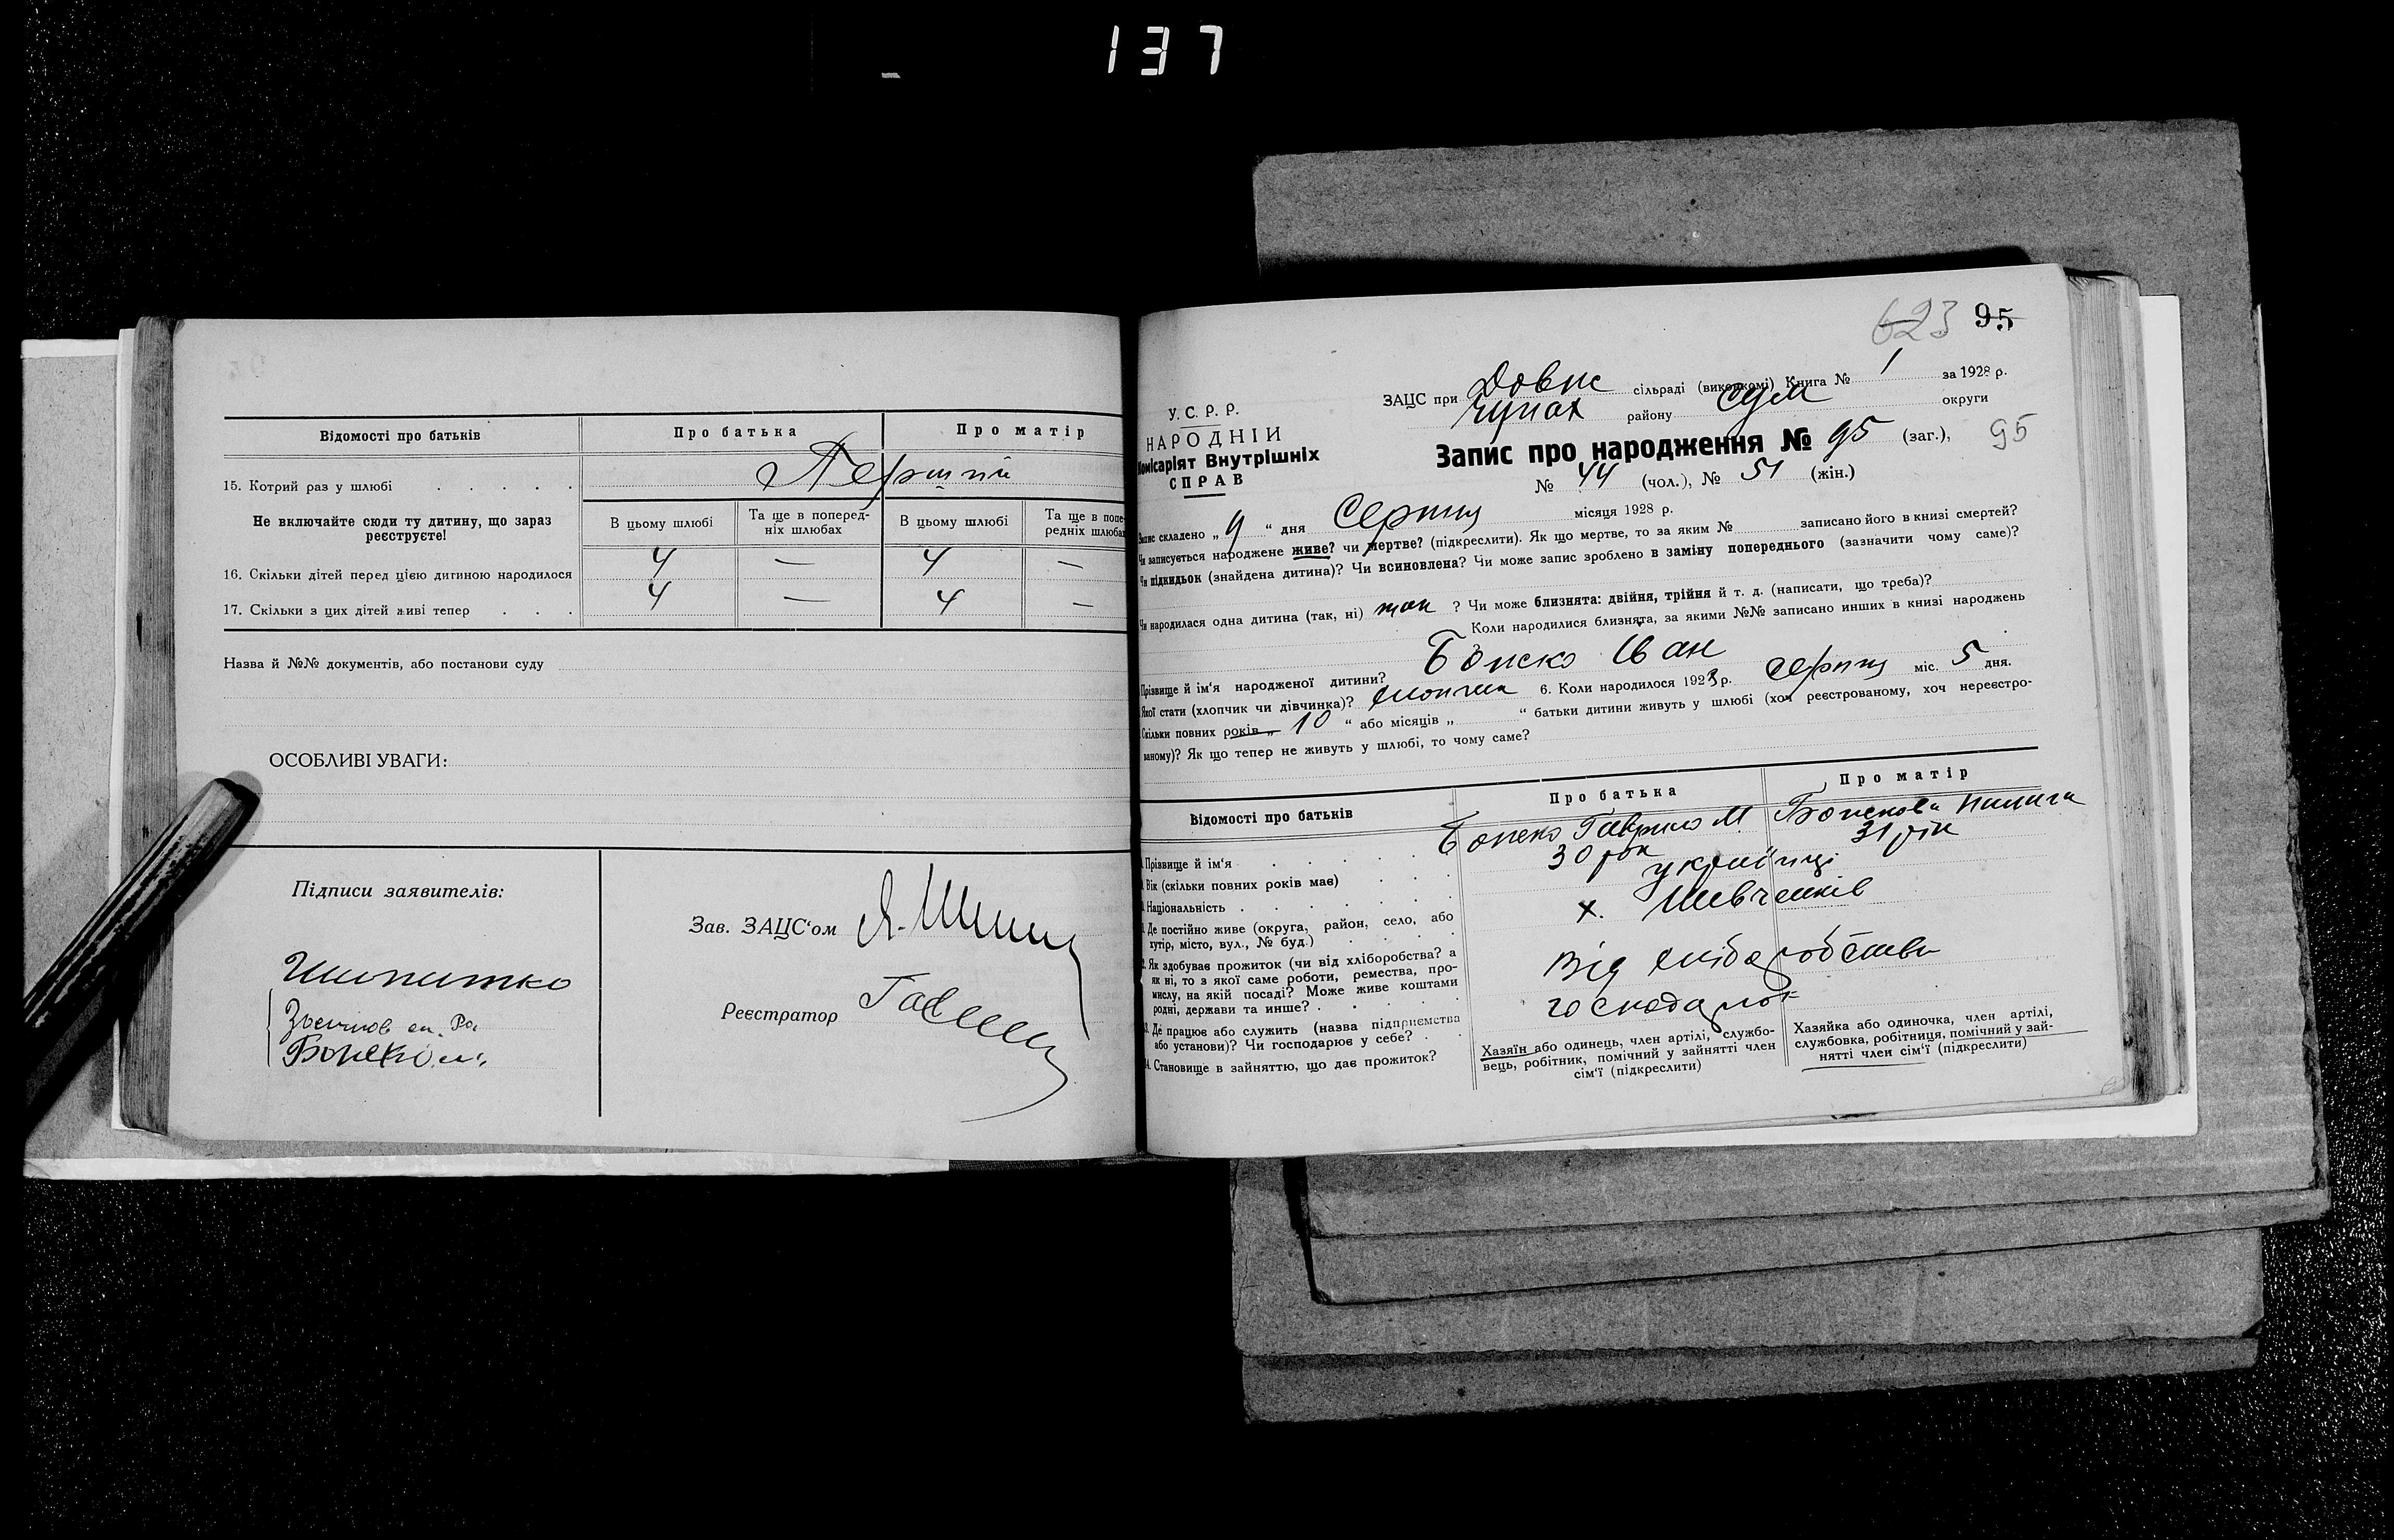 137
Відомості про батьків
Про батька
Про матір
15. Котрий раз у шлюбі
Перший
Не включайте сюди ту дитину, що зараз реєструєте!
В цьому шлюбі
Та ще в поперед-
ніх шлюбах
В цьому шлюбі
Та ще в попе
редніх шлюбах
16. Скільки дітей перед цією дитиною народилося
4 — 4 —
17. Скільки з цих дітей живі тепер
4 — 4 —
Назва й №№ документів, або постанови суду
ОСОБЛИВІ УВАГИ:
Підписи заявителів:
Зав. ЗАЦС'ом
Реєстратор
623 95
У. С. Р. Р.
НАРОДНІЙ
Комісаріят Внутрішніх
СПРАВ
ЗАЦС при Довж сільраді (виконкомі) Книга № 1 за 1928 р.
Чупах району Сум округи
Запис про народження № 95 (заг.), 95
№ 44 (чол.), № 51 (жін.)
Запис складено „ 9 “ дня Серпня місяця 1928 р.
Чи записується народжене живе? чи мертве? (підкреслити). Як що мертве, то за яким № записано його в книзі смертей?
Чи підкидьок (знайдена дитина)? Чи всиновлена? Чи може запис зроблено в заміну попереднього (зазначити чому саме)?
Чи народилася одна дитина (так, ні) так ? Чи може близнята: двійня, трійня й т. д. (написати, що треба)?
Коли народилися близнята, за якими №№ записано инших в книзі народжень
Прізвище й ім'я народженої дитини? Іван
Якої стати (хлопчик чи дівчинка)? хлопчик 6. Коли народилося 1928 р. серпня міс. 5 дня.
Скільки повних років „ 10 “ або місяців „ “ батьки дитини живуть у шлюбі (хоч реєстрованому, хоч нереєстро-
ваному)? Як що тепер не живуть у шлюбі, то чому саме?
Відомості про батьків
Про батька
Про матір
Прізвище й ім'я
Гаврило М
Вік (скільки повних років має)
30 рок
31 рік
Національність
українці
Де постійно живе (округа, район, село, або
хутір, місто, вул., № буд.)
х. Шевченків
Як здобуває прожиток (чи від хліборобства? а
як ні, то з якої саме роботи, ремества, про-
мислу, на якій посаді? Може живе коштами
родні, держави та инше?
Від хліборобства
Де працює або служить (назва підприємства
або установи)? Чи господарює у себе?
14. Становище в зайняттю, що дає прожиток?
Хазяїн або одинець, член артілі, службо-
вець, робітник, помічний у зайнятті член
сім'ї (підкреслити)
Хазяйка або одиночка, член артілі,
службовка, робітниця, помічний у зай-
нятті член сім'ї (підкреслити)